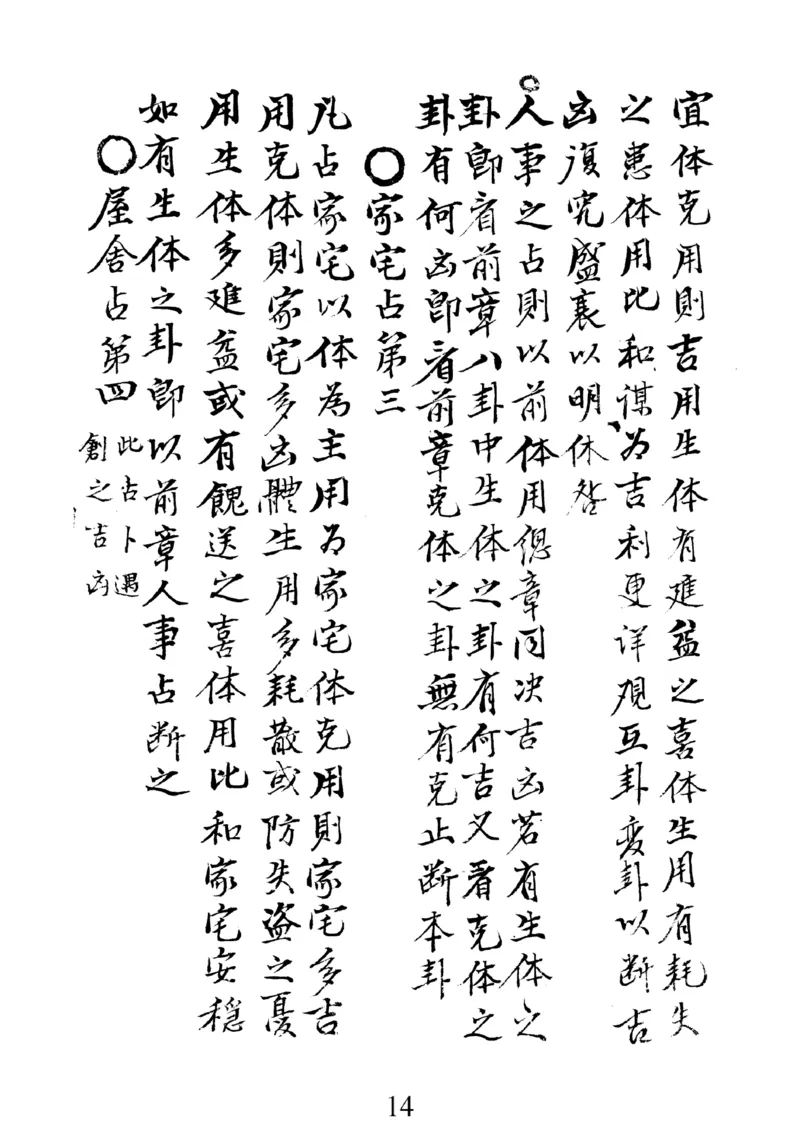 宜体克用則吉用生体有進益之喜体生用有耗失
之患体用比和谋为吉利更详观互卦变卦以断吉
凶復究盛衰以明休咎
○人事之占則以前体用總章同决吉凶若有生体之
卦即看前章八卦中生体之卦有何吉又看克体之
卦有何凶即看前章克体之卦無有克止断本卦
○家宅占第三
凡占家宅以体為主用为家宅体克用則家宅多吉
用克体則家宅多凶體生用多耗散或防失盗之憂
用生体多进益或有餽送之喜体用比和家宅安穩
如有生体之卦即以前章人事占断之
○屋舍占第四 此占卜遇
創之吉凶
14